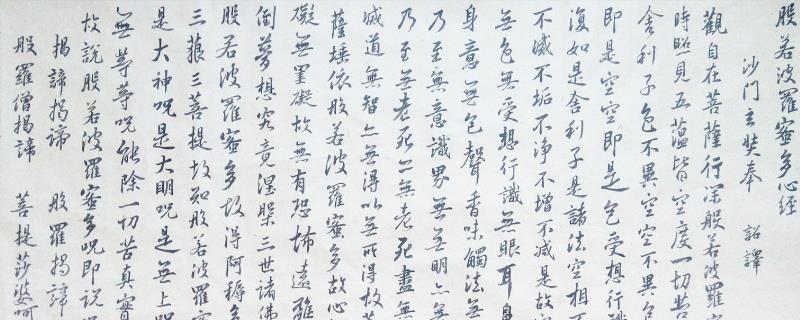 般若波羅蜜多心經
沙門玄奘奉 詔譯
觀自在菩薩行深般若波羅蜜
時照見五蘊皆空度一切苦
舍利子色不異空空不異色
即是空空即是色受想行識
復如是舍利子是諸法空相不
不滅不垢不淨不增不減是故空
無色無受想行識無眼耳鼻
身意無色聲香味觸法無
乃至無意識界無無明亦無
乃至無老死亦無老死盡無
滅道無智亦無得以無所得故菩
薩埵依般若波羅蜜多故心
礙無罣礙故無有恐怖遠離
倒夢想究竟涅槃三世諸佛
般若波羅蜜多故得阿耨多
三藐三菩提故知般若波羅蜜
是大神呪是大明呪是無上呪
無等等呪能除一切苦真實
故說般若波羅蜜多呪即說
揭諦揭諦 般羅揭諦
般羅僧揭諦 菩提莎婆呵